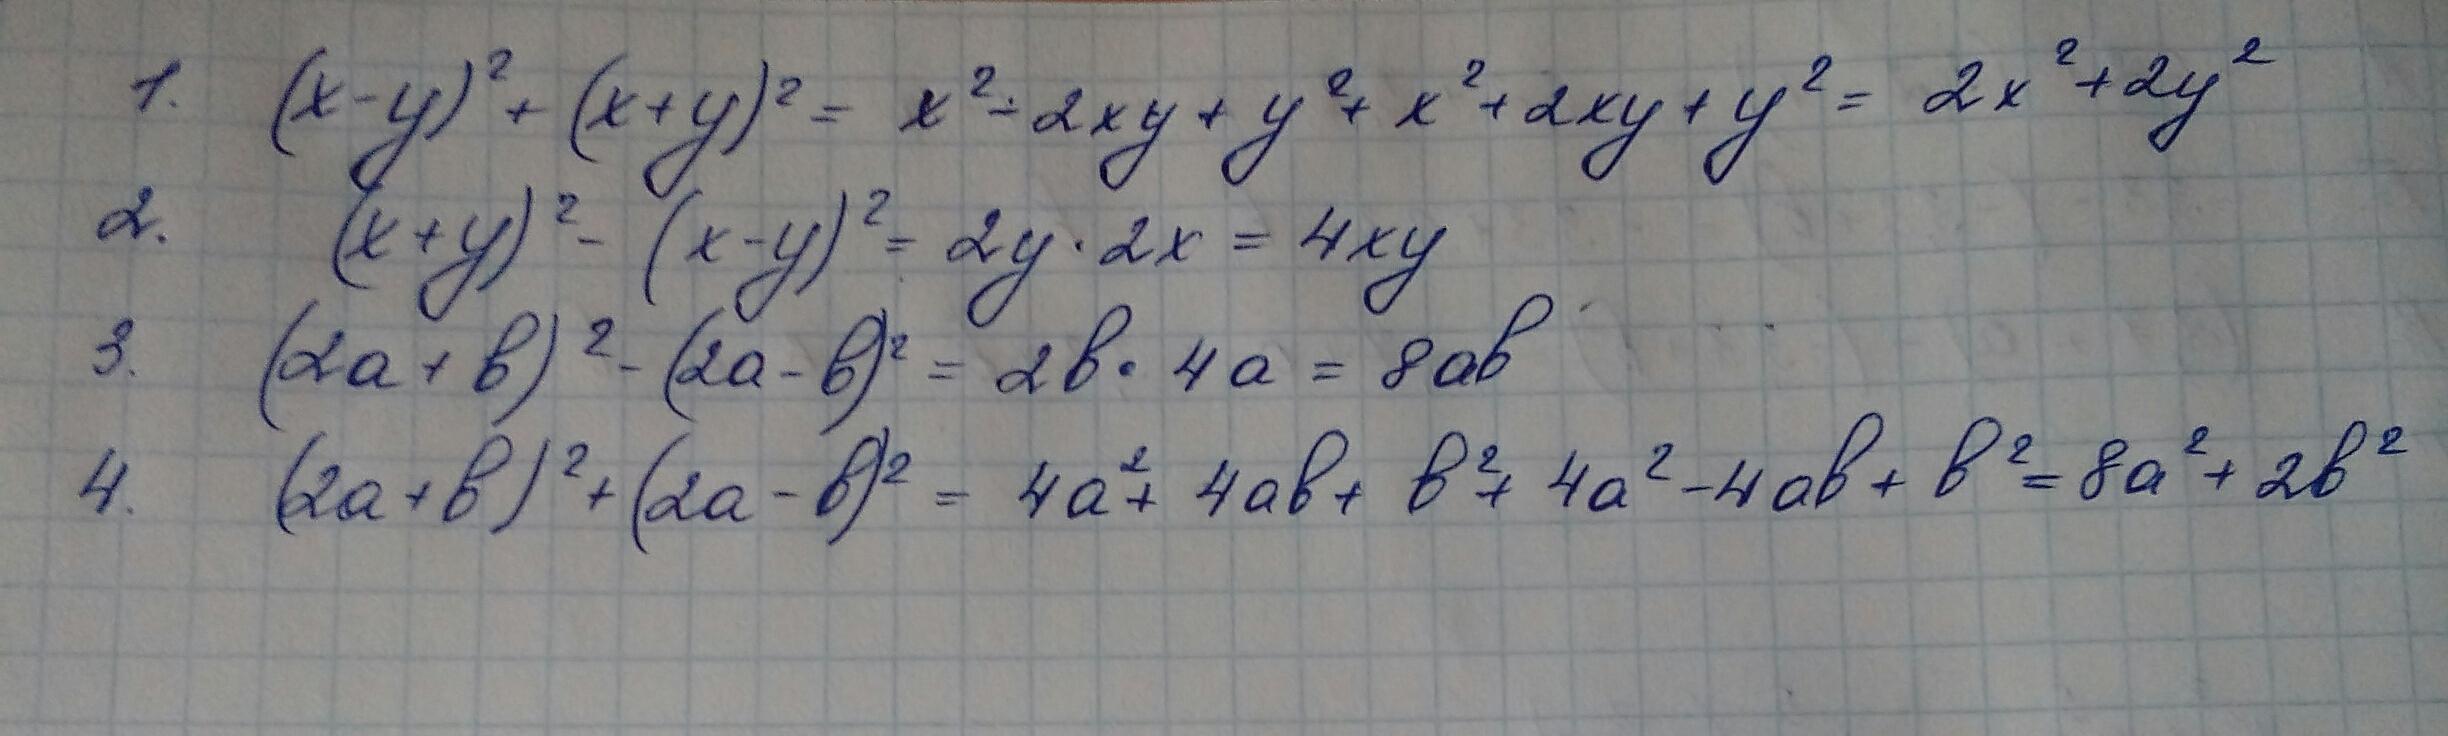 1. (x-y)² + (x+y)² = x² - 2xy + y² + x² + 2xy + y² = 2x² + 2y²
2. (x+y)² - (x-y)² = 2y · 2x = 4xy
3. (2a+b)² - (2a-b)² = 2b · 4a = 8ab
4. (2a+b)² + (2a-b)² = 4a² + 4ab + b² + 4a² - 4ab + b² = 8a² + 2b²